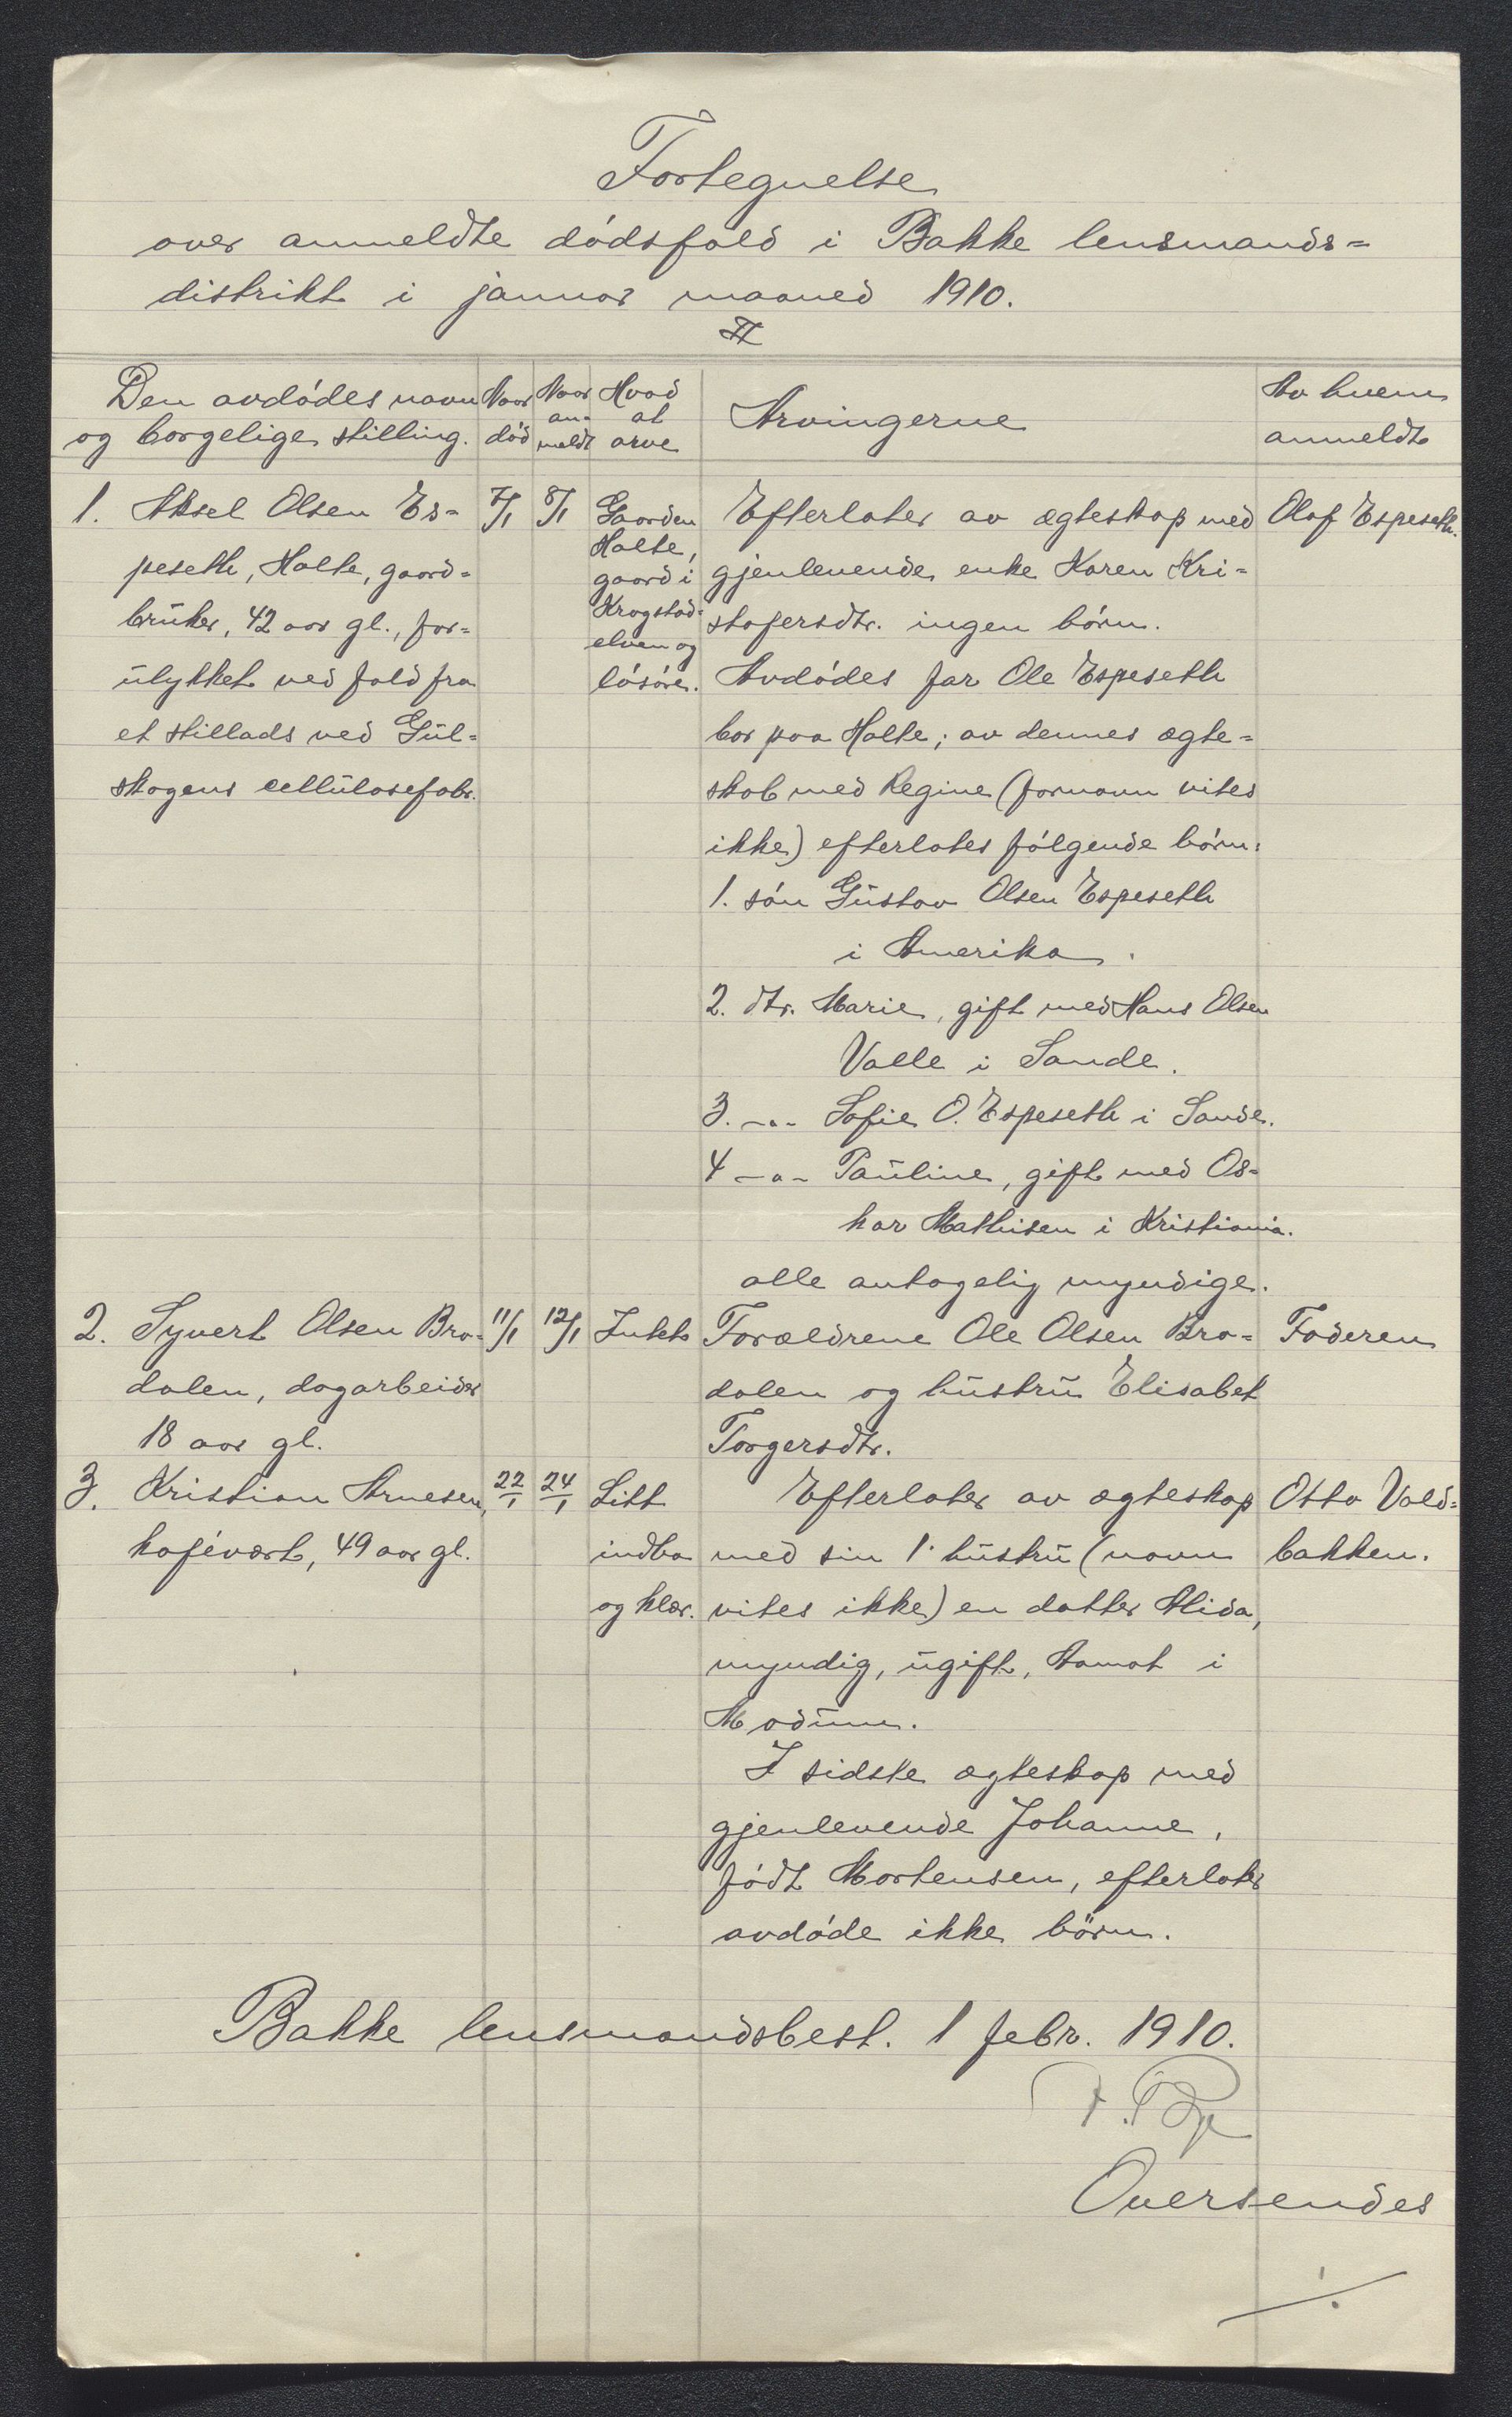 Fortegnelse
over anmeldte dødsfald i Bakke lensmands=
distrikt i januar maaned 1910.
Den avdødes navn
og borgelige stilling.
Naar
død
Naar
an-
meldt
Hvad
at
arve
Arvingerne
Av hvem
anmeldt
1. Aksel Olsen Es=
peseth, Holte, gaard=
bruker, 42 aar gl., for=
ulykket ved fald fra
et stillads ved Gul=
skogens cellulosefabr.
7/1
8/1
Gaarden
Holte,
gaard i
Krogstad=
elven og
løsøre.
Efterlater av ægteskap med
gjenlevende enke Karen Kri=
stofersdtr. ingen børn.
Avdødes far Ole Espeseth
bor paa Holte; av dennes ægte=
skab med Regine (fornavn vites
ikke) efterlates følgende børn:
1. søn Gustav Olsen Espeseth
i Amerika.
2. dtr. Marie, gift med Hans Olsen
Valle i Sande.
3. -"- Sofie O. Espeseth i Sande.
4 -"- Pauline, gift med Os=
kar Mathisen i Kristiania.
alle antagelig myndige.
Olaf Espeseth.
2. Syvert Olsen Bra=
dalen, dagarbeider
18 aar gl.
11/1
12/1
Intet
Forældrene Ole Olsen Bra=
dalen og hustru Elisabet
Torgersdtr.
Faderen
3. Kristian Arnesen,
kafévært, 49 aar gl.
22/1
24/1
Litt
indbo
og klær.
Efterlater av ægteskap
med sin 1. hustru (navn
vites ikke) en datter Alida,
myndig, ugift, Aamot i
Modum.
I sidste ægteskap med
gjenlevende Johanne,
født Mortensen, efterlater
avdøde ikke börn.
Otto Vald=
bakken.
Bakke lensmandsbest. 1 febr. 1910.
Oversendes